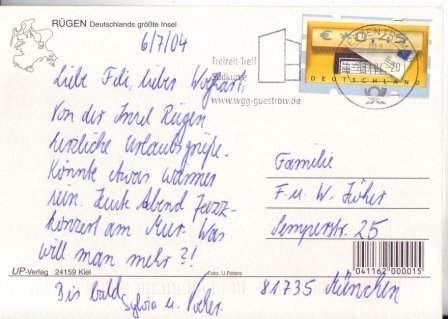 RÜGEN Deutschlands größte Insel
6/7/04
Liebe Fdi, lieber Wolfhart,
Von der Insel Rügen
herzliche Urlaubsgrüße.
Könnte etwas wärmer
sein. Heute Abend Jazz-
konzert am Meer. Was
will man mehr?!
Bis bald,
Sylvia u. Volker.
Freizeit-Treff
Südkurve
www.wgg-guestrow.de
DEUTSCHLAND
Familie
F. u. W. Höher
Semperstr. 25
81735 München
UP-Verlag 24159 Kiel
Foto: U.Peters
041162 000015